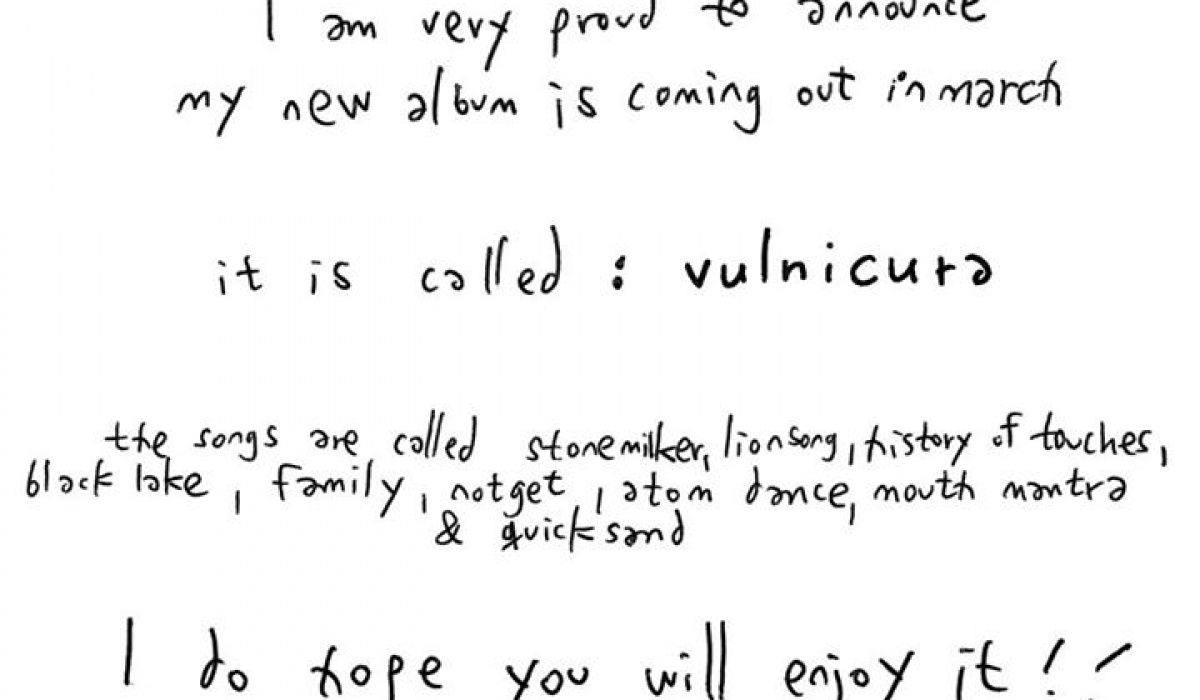 I am very proud to announce
my new album is coming out in march
it is called : vulnicura
the songs are called stonemilker, lionsong, history of touches,
black lake, family, notget, atom dance, mouth mantra
& quicksand
I do hope you will enjoy it!!